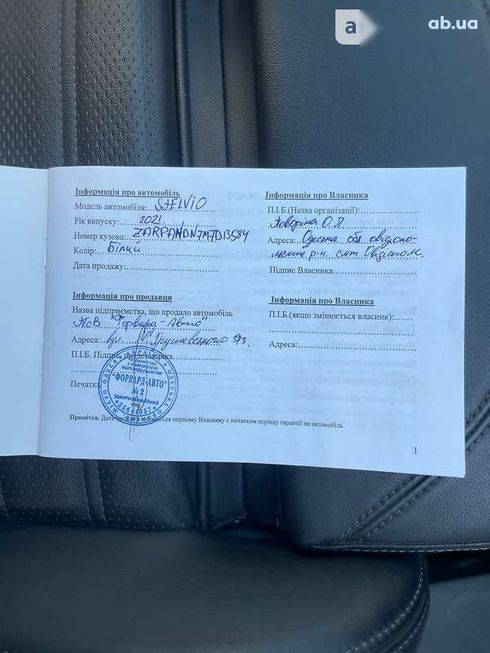 a
ab.ua
Інформація про автомобіль
Модель автомобіля: STELVIO
Рік випуску: 2021
Номер кузова: ZARPANDN7M7D13584
Колір: Білий
Дата продажу:
Інформація про продавця
Назва підприємства, що продало автомобіль
ТОВ "Форвард-Авто"
Адреса: вул.
П.І.Б. Підпис
Печатка
"ФОРВАРД-АВТО"
№ 2
Примітка. Дата першому Власнику є початком періоду гарантії на автомобіль.
Інформація про Власника
П.І.Б.(Назва організації):
О.
Адреса: Одеська обл
р-н. смт
Підпис Власника
Інформація про Власника
П.І.Б.(якщо змінюється власник):
Адреса:
1